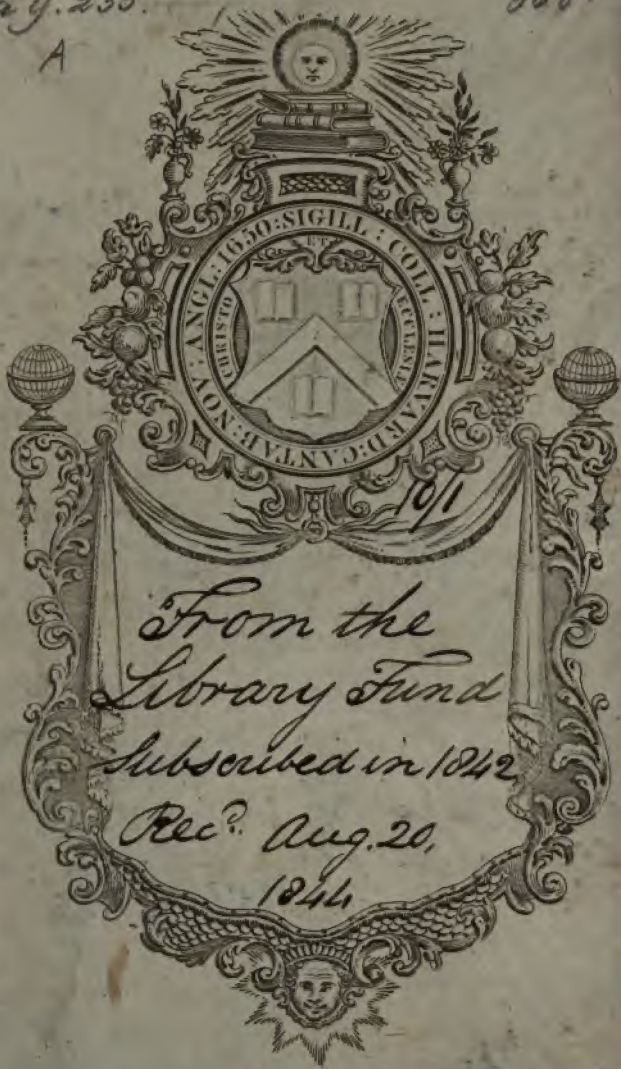 A
SIGILL : COLL : HARVARD : CANTAB : NOV : ANGL : 1650 :
ET
CHRISTO
ECCLESIÆ
10/1
From the
Library Fund
Subscribed in 1842
Rec.d Aug. 20,
1844